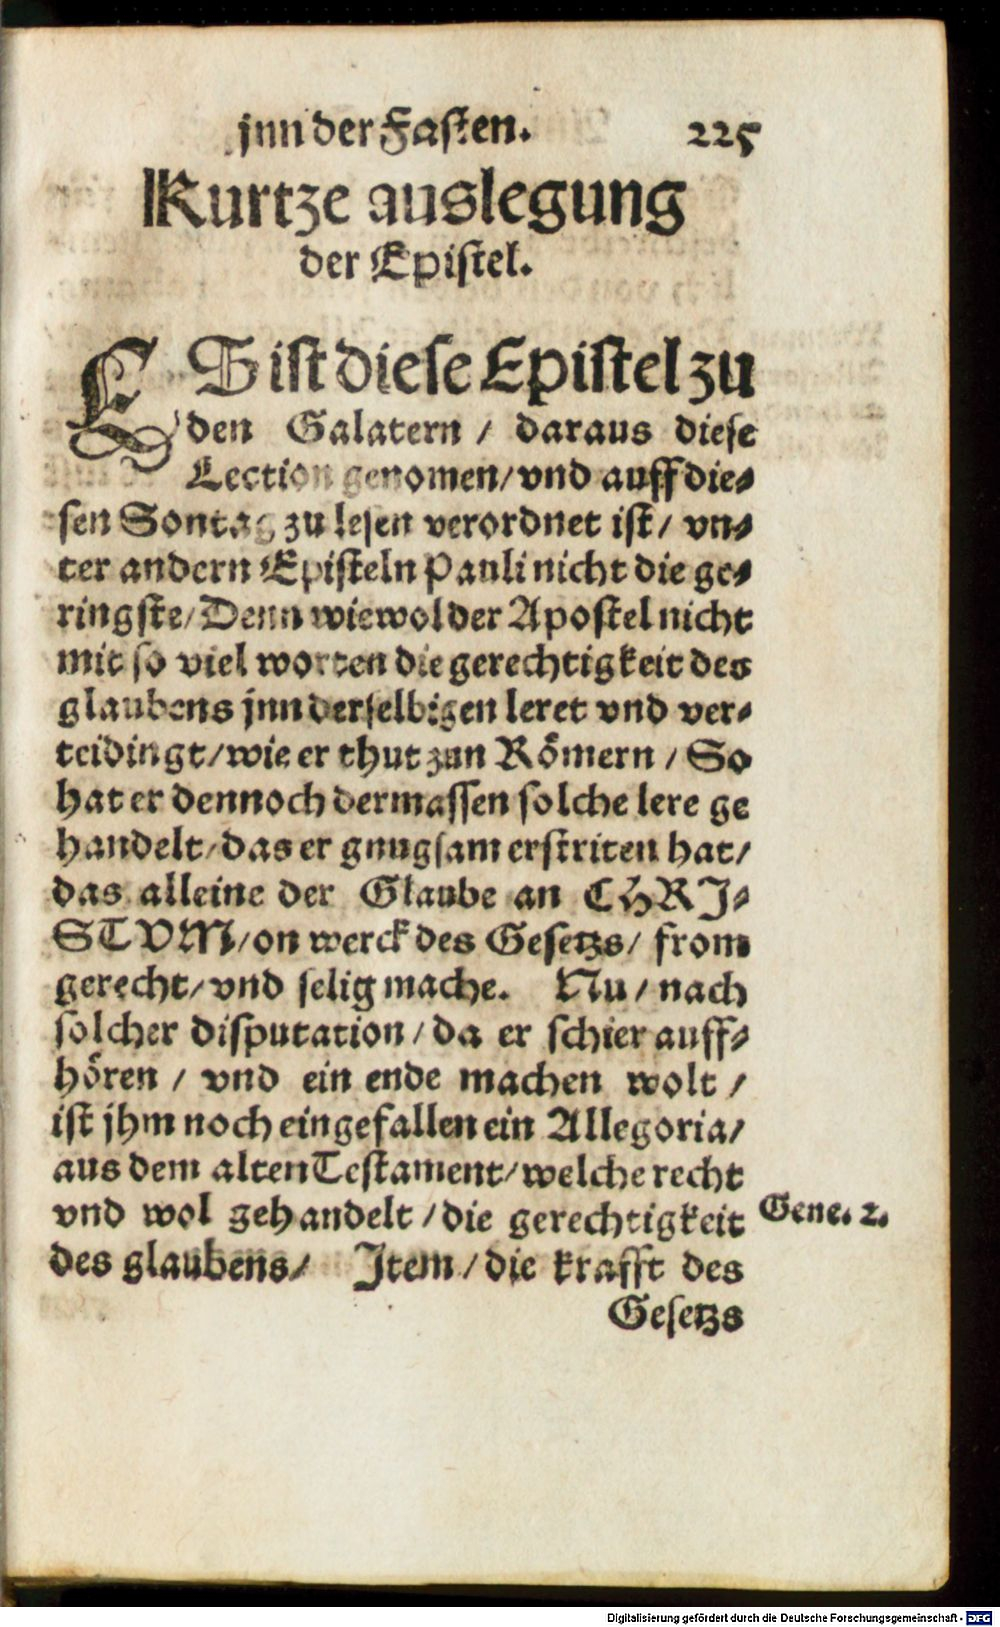 jnn der Fasten. 225
Kurtze auslegung
der Epistel.
ES ist diese Epistel zu
den Galatern / daraus diese
Lection genomen/ vnd auff die-
sen Sontag zu lesen verordnet ist/ vn-
ter andern Episteln Pauli nicht die ge-
ringste/ Denn wiewol der Apostel nicht
mit so viel worten die gerechtigkeit des
glaubens jnn derselbigen leret vnd ver-
teidingt/ wie er thut zun Römern / So
hat er dennoch dermassen solche lere ge
handelt/ das er gnugsam erstriten hat/
das alleine der Glaube an CHRI-
STVM/ on werck des Gesetzs/ from
gerecht/ vnd selig mache. Nu / nach
solcher disputation / da er schier auff-
hören / vnd ein ende machen wolt /
ist jhm noch eingefallen ein Allegoria/
aus dem alten Testament/ welche recht
vnd wol gehandelt / die gerechtigkeit Gene. 2.
des glaubens/ Item / die krafft des
Gesetzs
Digitalisierung gefördert durch die Deutsche Forschungsgemeinschaft - DFG